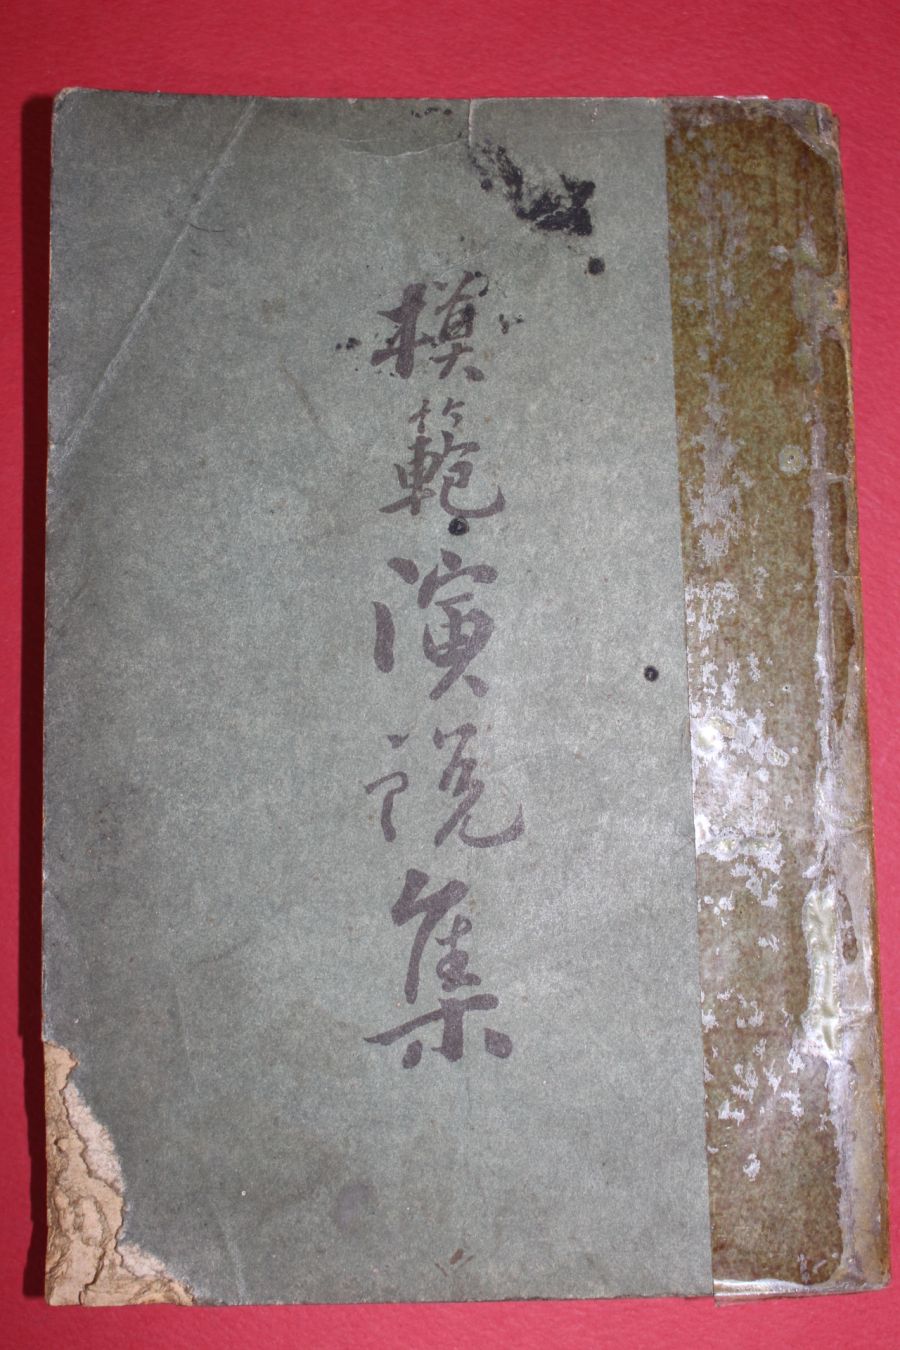 模範演說集